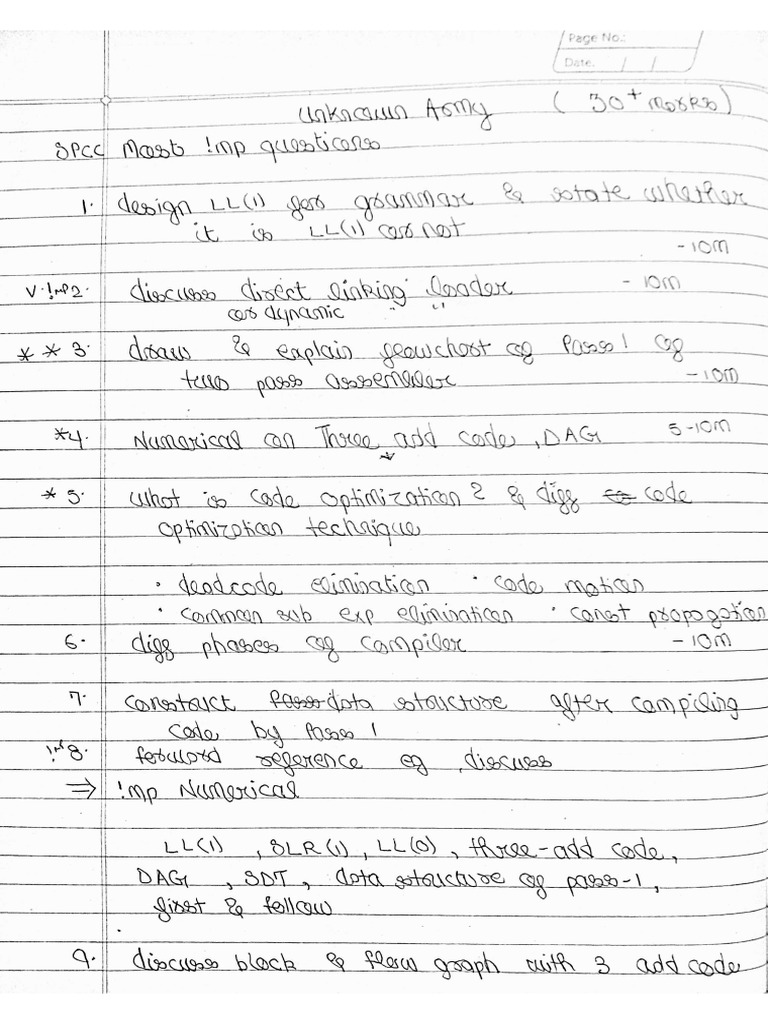 Page No.:
Date. / /
Unknown Army (30+ marks)
SPCC Most !mp questions
1. design LL(1) for grammar & state whether
it is LL(1) or not
-10M
V.!mp 2. discuss direct linking loader -10M
or dynamic " "
** 3. draw & explain flowchart of Pass 1 of
two pass assembler -10M
*4. Numerical on Three add code, DAG 5-10M
* 5. what is code optimization? & diff code
optimization technique
• deadcode elimination • code motion
• common sub exp elimination • const propogation
6. diff phases of compiler -10M
7. construct Pass data structure after compiling
code by Pass 1
!mp 8. forword reference eg, discuss
⇒ !mp Numerical
LL(1), SLR(1), LL(0), three-add code,
DAG, SDT, data structure of pass-1,
first & follow
9. discuss block & flow graph with 3 add code